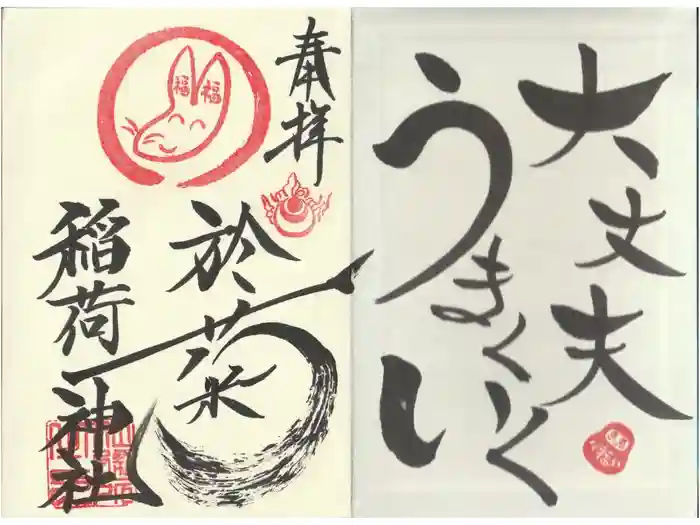 大丈夫
うまくいく
い
奉拝
福 福
於菜
稲荷神社